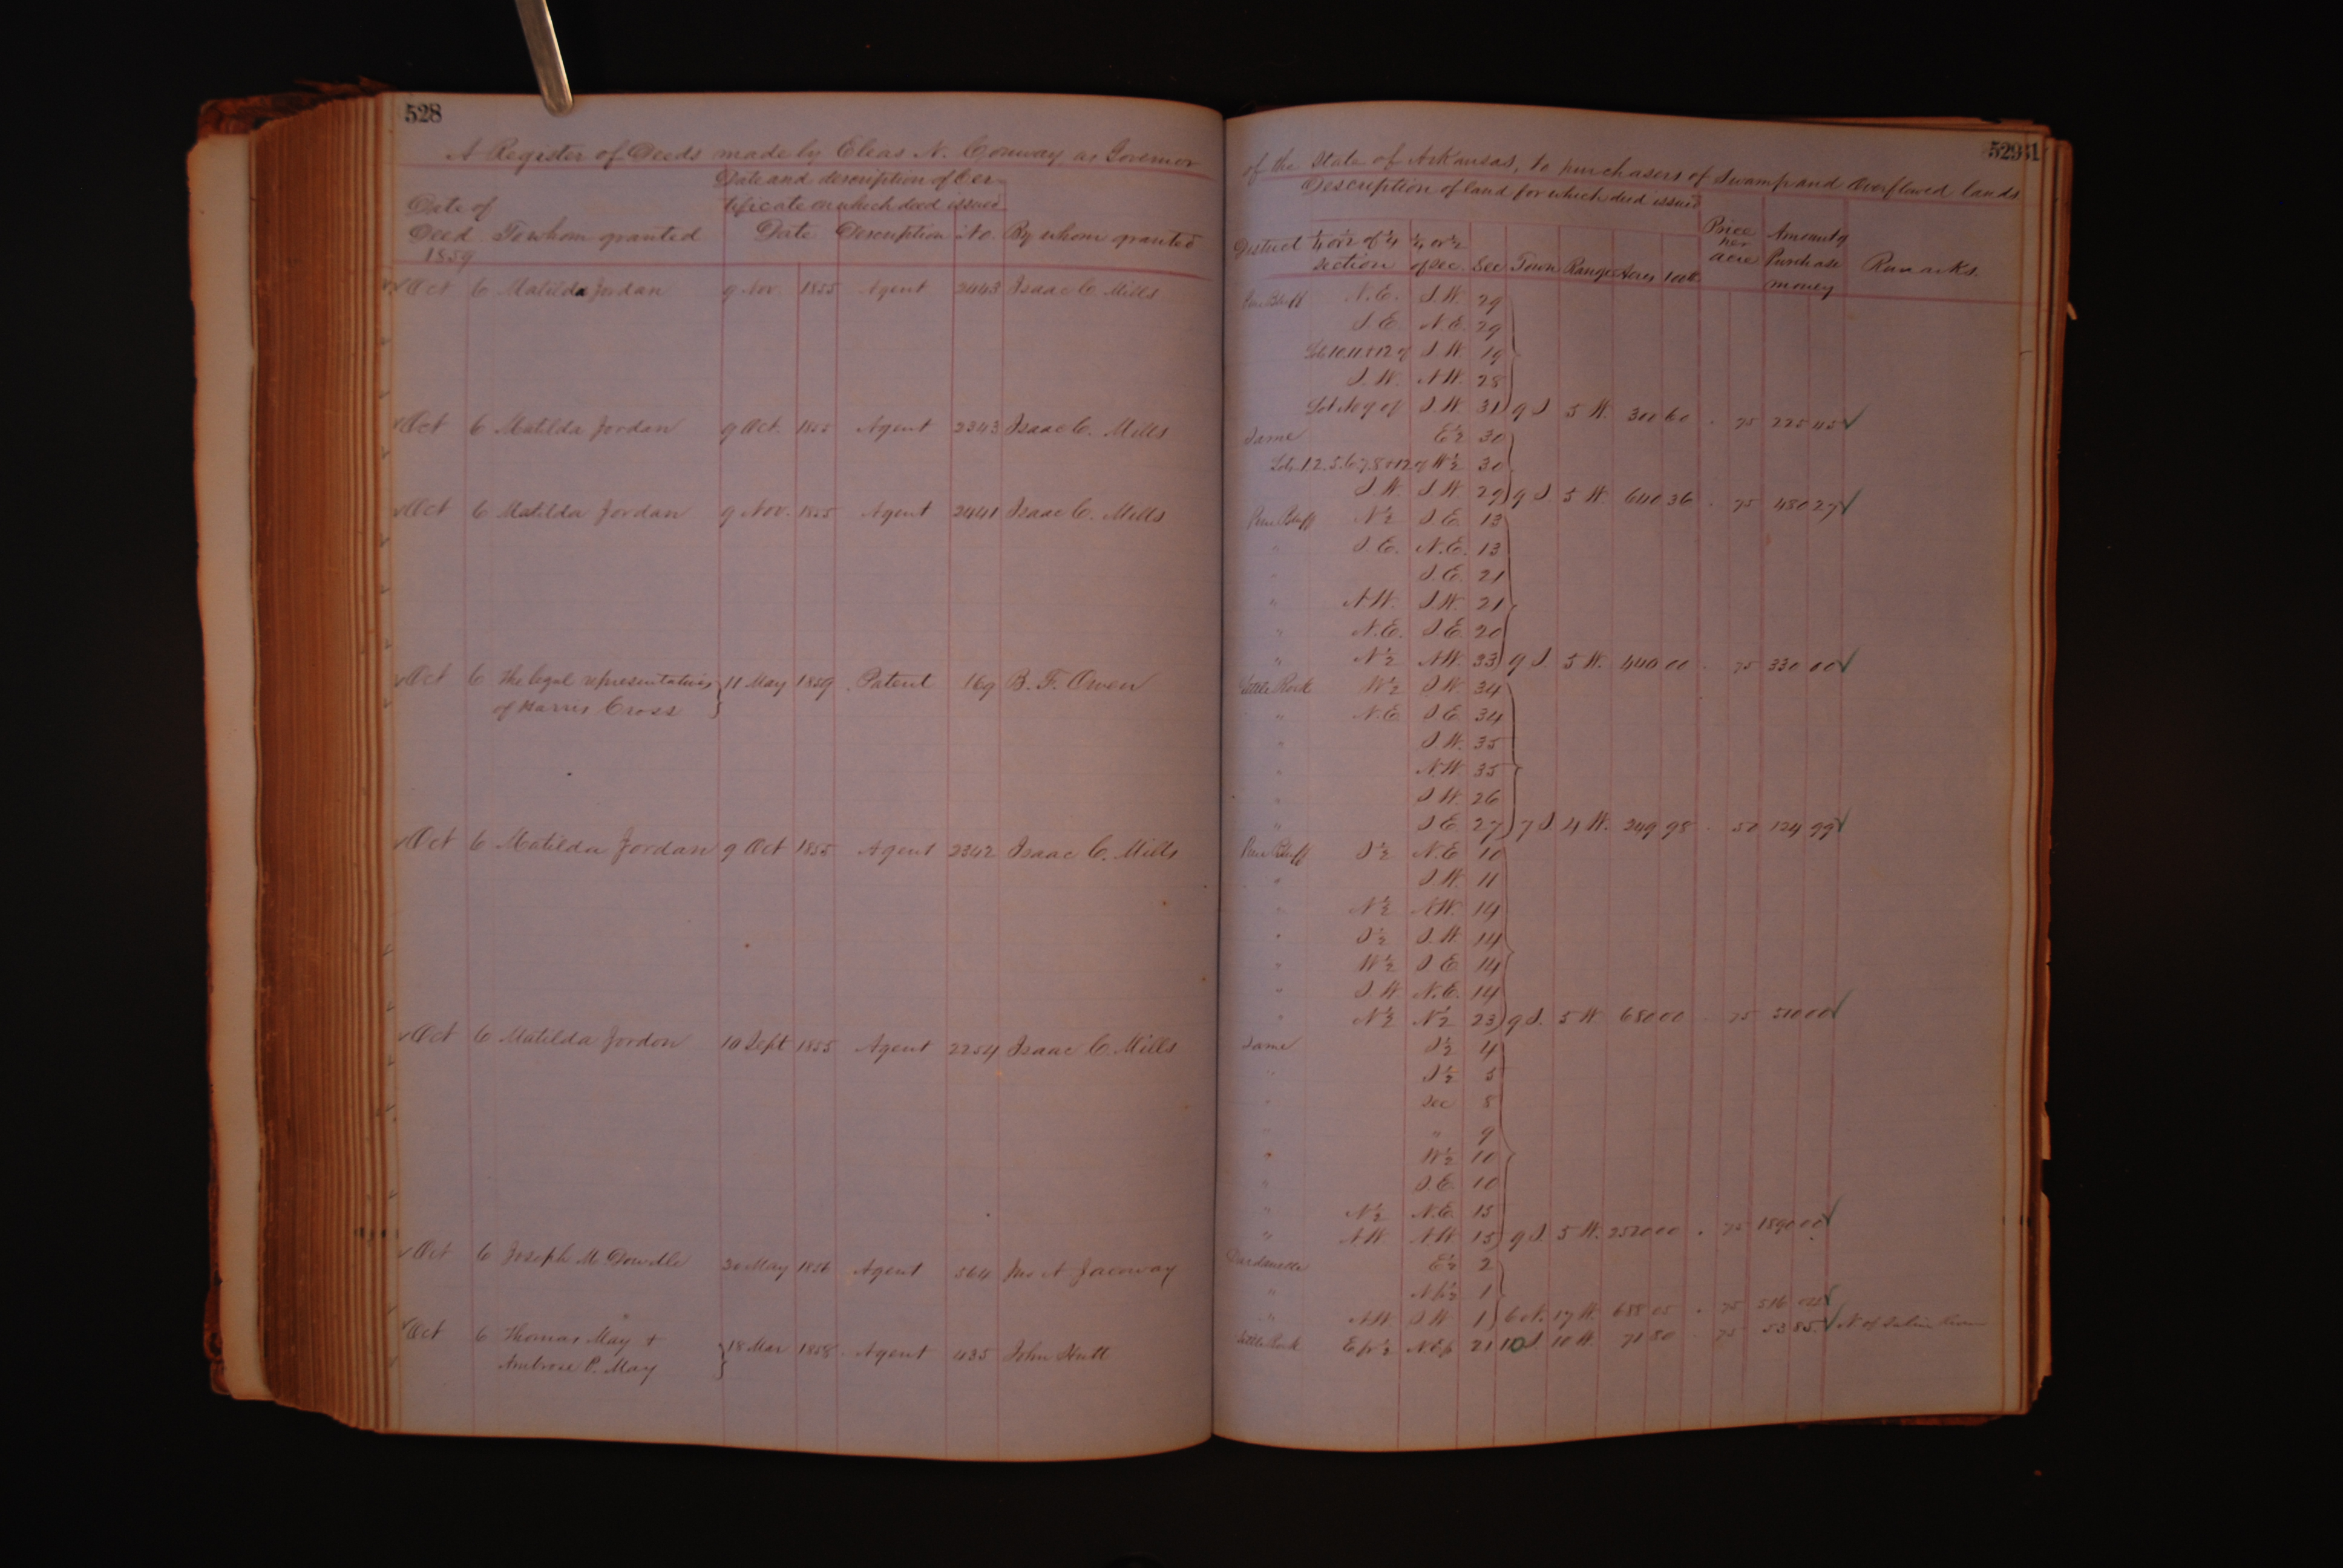 528
A Register of Deeds made by Elias N. Conway as Governor
Date and description of Cer-
Date of tificate on which deed issued
Deed To whom granted Date Description No. By whom granted
1859
Oct 6 Matilda Jordan 9 Nov. 1855 Agent 2443 Isaac C Mills
Oct 6 Matilda Jordan 9 Oct. 1855 Agent 2343 Isaac C. Mills
Oct 6 Matilda Jordan 9 Nov. 1855 Agent 2441 Isaac C. Mills
Oct 6 The legal representatives } 11 May 1859 Patent 169 B. F. Owen
of Harris Cross
Oct 6 Matilda Jordan 9 Oct 1855 Agent 2342 Isaac C. Mills
Oct 6 Matilda Jordon 10 Sept 1855 Agent 2254 Isaac C. Mills
Oct 6 Joseph McDowdle 30 May 1856 Agent 564 Jno A Jacoway
Oct 6 Thomas May + } 18 Mar 1858 Agent 435 John Hutt
Ambrose P. May
529
of the State of Arkansas, to purchasers of Swamp and Overflowed lands
Description of land for which deed issued
District ¼ or ½ of ¼ ¼ or ½ Price per Amount of
section of sec. Sec Town Range Acres 100ths acre Purchase Remarks.
money
Pine Bluff N.E. S.W. 29
S.E. N.E. 29
Lots 10.11.+12 of S.W. 19
S.W. N.W. 28
Lot No 9 of S.W. 31 9 S 5 W. 300 60 . 75 225 45 ✓
Same E½ 30
Lots 1.2.5.6.7.8+12 of W½ 30
S.W. S.W. 29 9 S. 5 W. 640 36 . 75 480 27 ✓
Pine Bluff N½ S.E. 13
" S.E. N.E. 13
" S.E. 21
" N.W. S.W. 21
" N.E. S.E. 20
" N½ N.W. 33 9 S. 5 W. 440 00 . 75 330 00 ✓
Little Rock W½ S.W. 34
" N.E. S.E. 34
" S.W. 35
" N.W. 35
" S.W. 26
" S.E. 27 7 S 4 W. 249 98 . 50 124 99 ✓
Pine Bluff S½ N.E. 10
" S.W. 11
" N½ N.W. 14
" S½ S.W. 14
" W½ S.E. 14
" S.W. N.E. 14
" N½ N½ 23 9 S. 5 W 680 00 . 75 510 00 ✓
Same S½ 4
" S½ 5
" Sec 8
" " 9
" W½ 10
" S.E. 10
" N½ N.E. 15
" N.W. N.W. 15 9 S. 5 W. 2520 00 . 75 1890 00 ✓
Dardanelle E½ 2
" 1
" N.W. S.W. 1 6 N. 17 W. 688 05 . 75 516 04 ✓
Little Rock E fr ½ N.E fr 21 10 S. 10 W. 71 80 75 53 85 ✓ N of Saline River